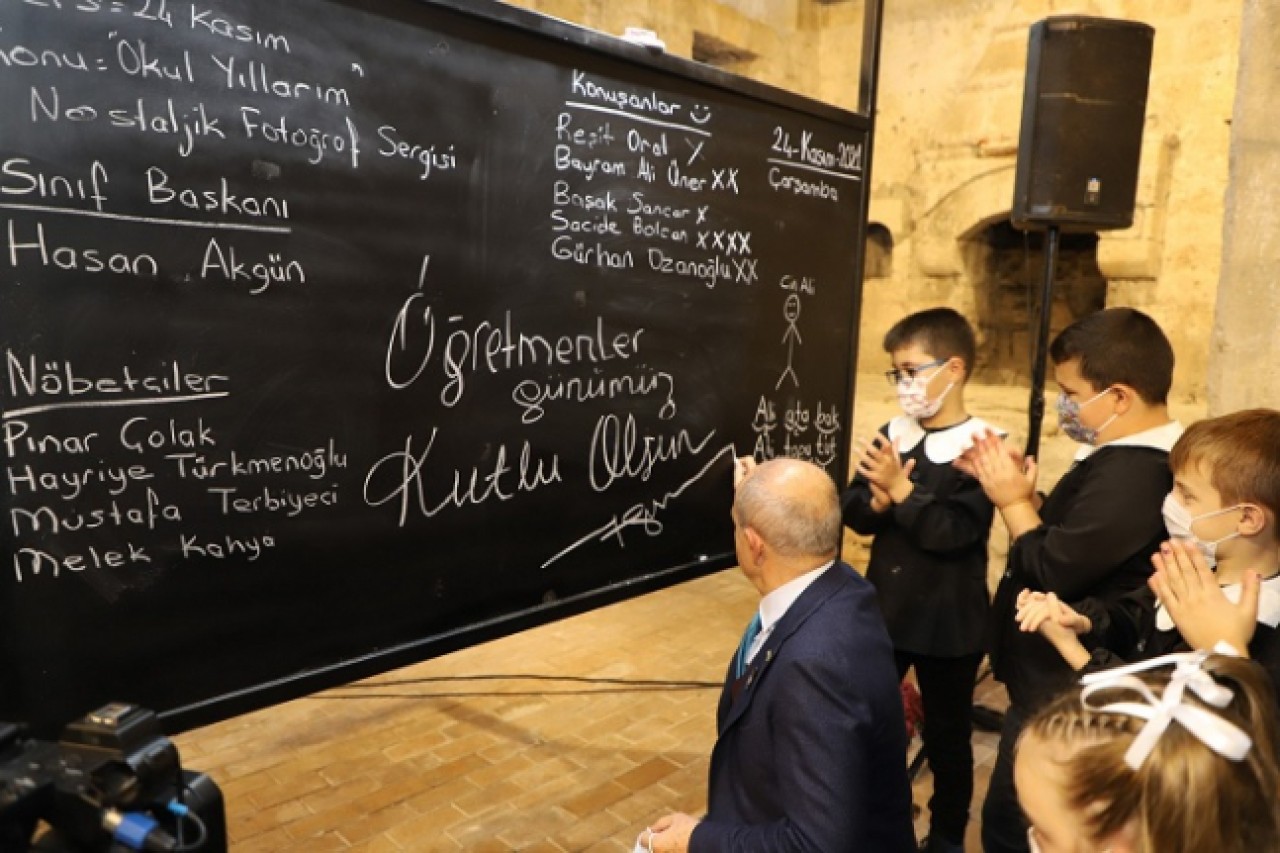 Ders = 24 Kasım
Konu = "Okul Yıllarım"
Nostaljik Fotoğraf Sergisi
Sınıf Başkanı
Hasan Akgün
Nöbetçiler
Pınar Çolak
Hayriye Türkmenoğlu
Mustafa Terbiyeci
Melek Kahya
Öğretmenler
günümüz
Kutlu Olsun
Konuşanlar
Reşit Oral X
Bayram Ali Üner XX
Başak Sancar X
Sacide Bolcan XXXX
Gürhan Ozanoğlu XX
24-Kasım-2021
Çarşamba
Cin Ali
Ali ata bak
Ali topu tut